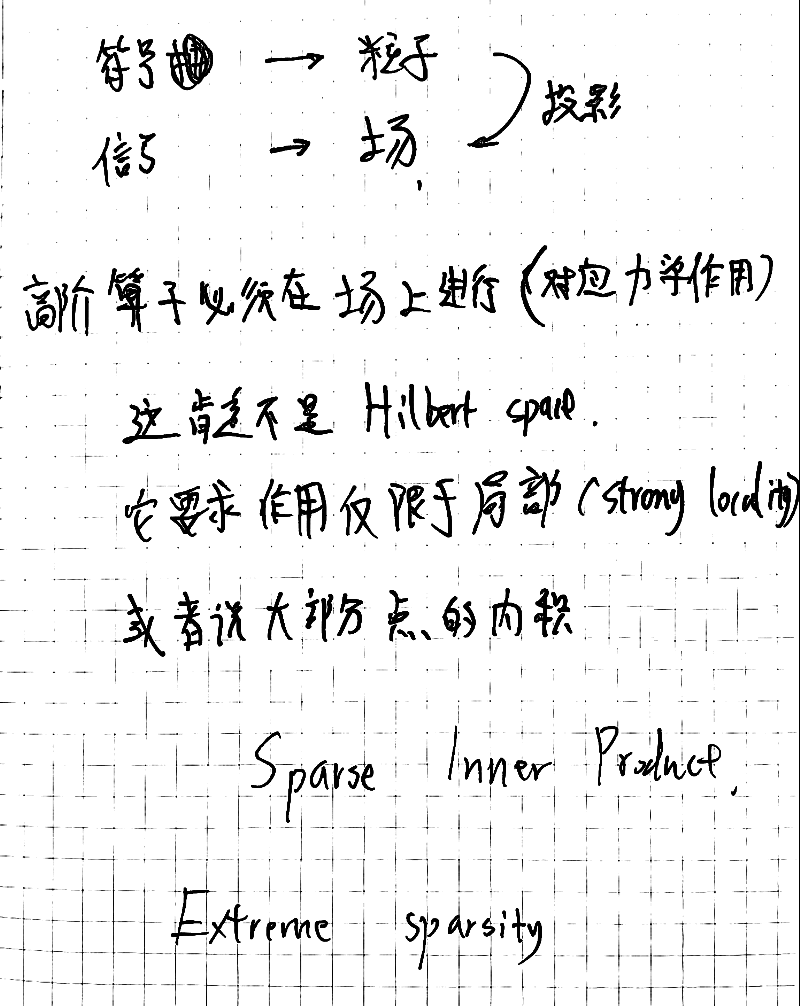 符号 → 粒子
投影
信号 → 场,
高阶算子必须在场上进行(对应力学作用)
这肯定不是 Hilbert space.
它要求作用仅限于局部(strong locality)
或者说大部分点的内积
Sparse Inner Product.
Extreme sparsity